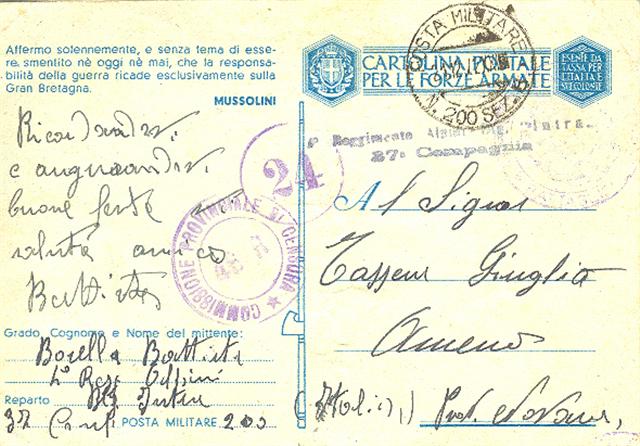 Affermo solennemente, e senza tema di esse-
re smentito nè oggi nè mai, che la responsa-
bilità della guerra ricade esclusivamente sulla
Gran Bretagna.
MUSSOLINI
CARTOLINA POSTALE
PER LE FORZE ARMATE
ESENTE DA
TASSA PER
L'ITALIA E
SUE COLONIE
POSTA MILITARE
N. 200 SEZ.
Reggimento Alpini
37ª Compagnia
24
COMMISSIONE PROVINCIALE DI CENSURA
Ricordandovi
e augurandovi
buone feste
saluta amico
Battista
Grado, Cognome e Nome del mittente:
Borella Battista
4º Regg Alpini
Reparto Btg Intra
37 Comp POSTA MILITARE 200
Al Signor
Giuglio
Ameno
(Italia) Prov. Novara